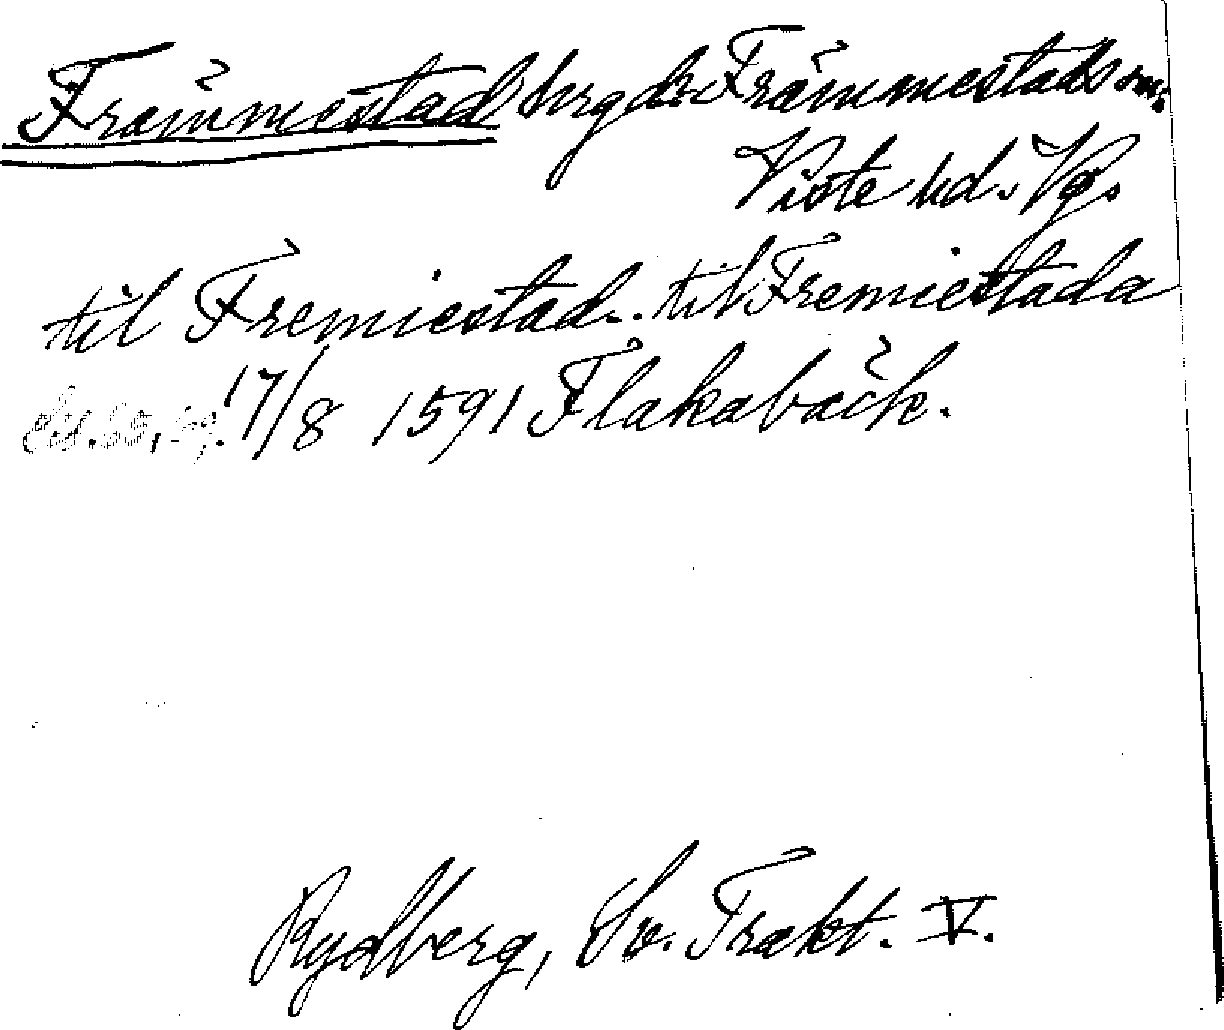 Främmestad hrgd. Främmestads sn.
Viste hd. Vg.
til Fremiestad. til Fremiestada
17/8 1591 Flakabäck.
Rydberg, Sv. Trakt. V.